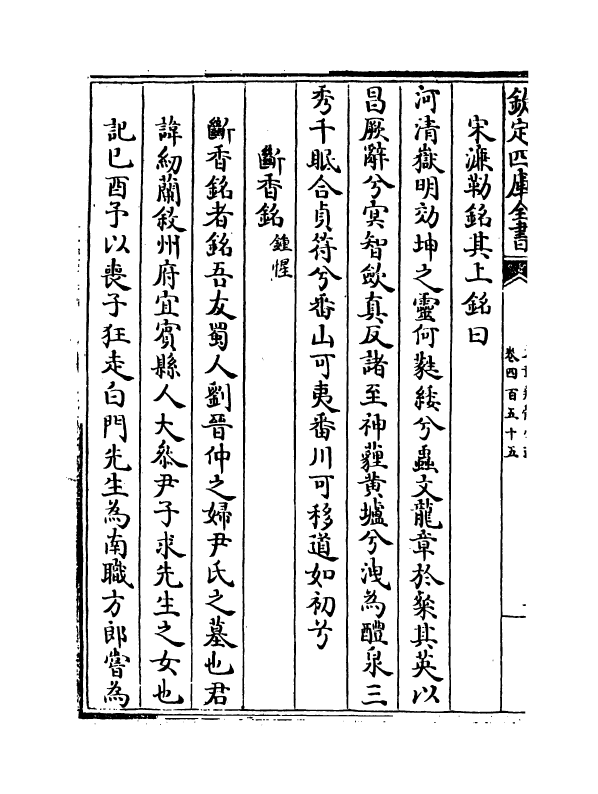 欽定四庫全書
卷四百五十五
宋濂勒銘其上銘曰
河清嶽明効坤之靈何蕤緌兮蟲文龍章於粲其英以
昌厥辭兮寔智斂真反諸至神薶黄壚兮洩為醴泉三
秀千眠合貞符兮番山可夷番川可移道如初兮
斷香銘 鍾惺
斷香銘者銘吾友蜀人劉晉仲之婦尹氏之墓也君
諱紉蘭敘州府宜賓縣人大叅尹子求先生之女也
記己酉予以喪子狂走白門先生為南職方郎嘗為